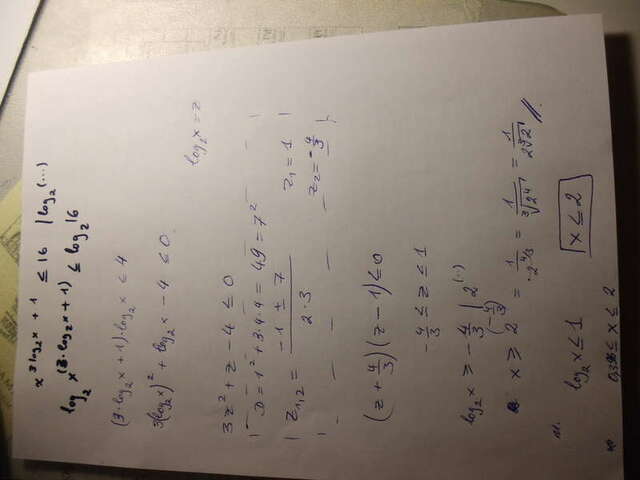 x^(3log₂x + 1) ≤ 16 | log₂(...)
log₂ x^(3·log₂x+1) ≤ log₂16
(3·log₂x + 1)·log₂x ≤ 4
3(log₂x)² + log₂x - 4 ≤ 0
log₂x = z
3z² + z - 4 ≤ 0
D = 1² + 3·4·4 = 49 = 7²
z₁,₂ = (-1 ± 7)/(2·3)
z₁ = 1
z₂ = -4/3
(z + 4/3)(z - 1) ≤ 0
-4/3 ≤ z ≤ 1
log₂x ≥ -4/3 | 2^(..)
x ≥ 2^(-4/3) = 1/2^(4/3) = 1/∛(2⁴) = 1/(2∛2) //
log₂x ≤ 1
x ≤ 2
≤ x ≤ 2